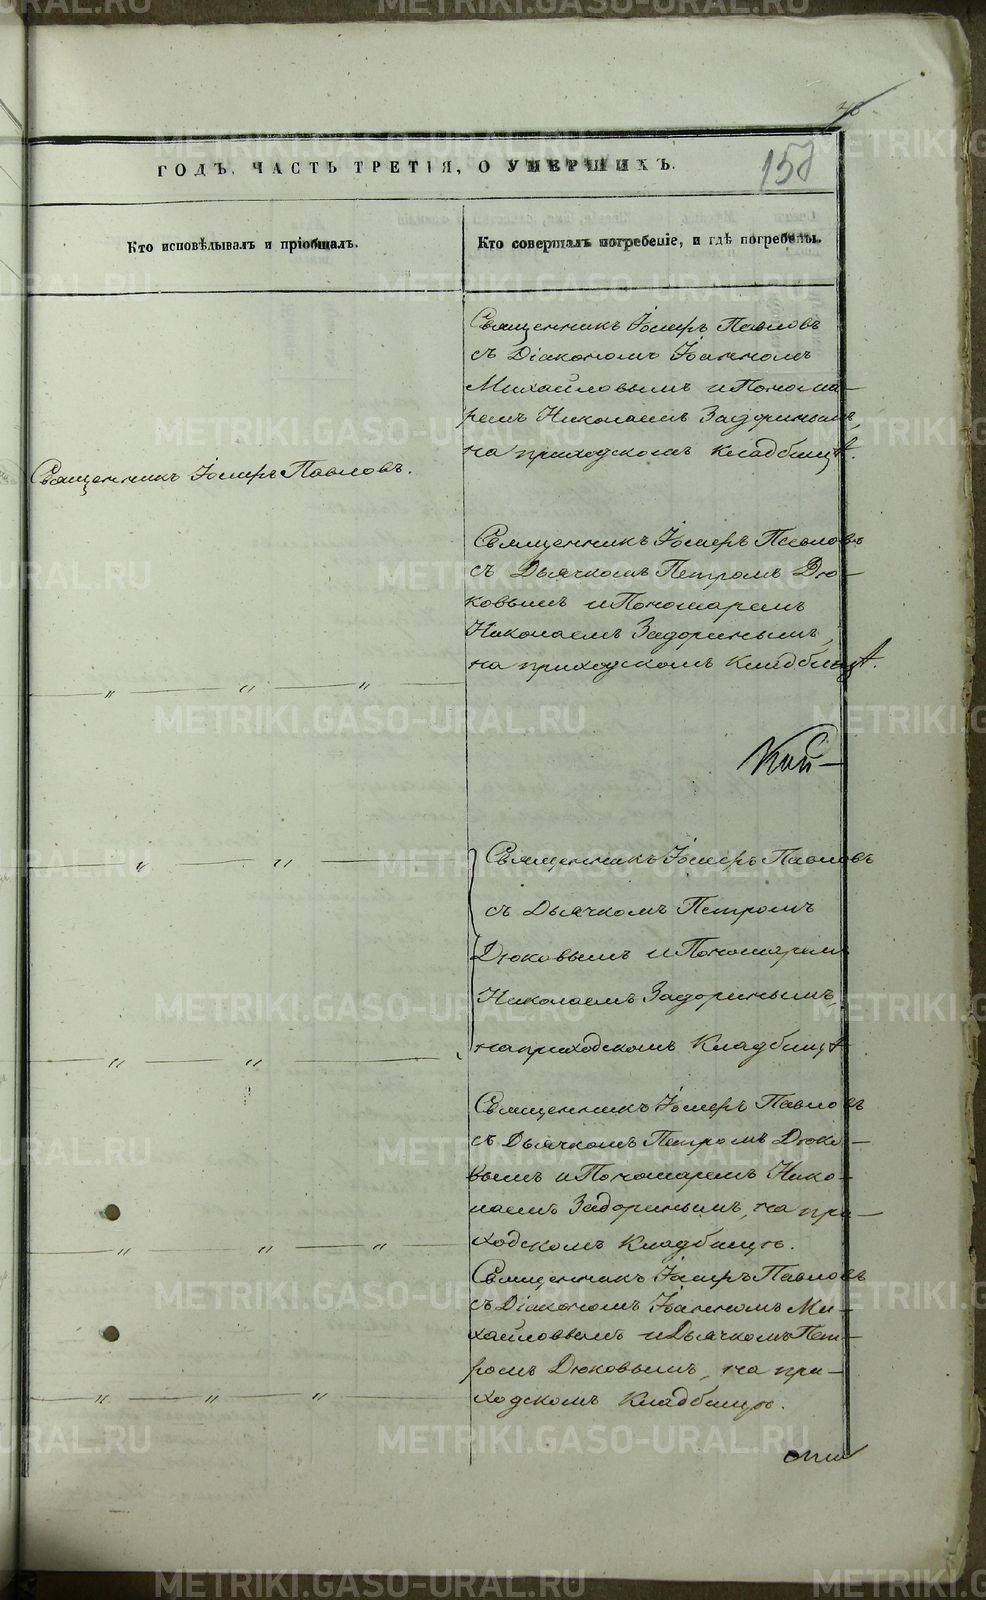 158
ГОДЪ, ЧАСТЬ ТРЕТІЯ, О УМЕРШИХЪ.
Кто исповѣдывалъ и пріобщалъ.
Кто совершалъ погребеніе, и гдѣ погребены.
Священникъ Іосифъ Павловъ
съ Діакономъ Іоанномъ
Михайловымъ и Понома-
ремъ Николаемъ Задоринымъ,
на приходскомъ кладбищѣ.
Священникъ Іосифъ Павловъ.
Священникъ Іосифъ Павловъ
съ Дьячкомъ Петромъ Дю-
ковымъ и Пономаремъ
Николаемъ Задоринымъ,
на приходскомъ кладбищѣ.
— „ — „ — „ —
— „ — „ —
Священникъ Іосифъ Павловъ
съ Дьячкомъ Петромъ
Дюковымъ и Пономаремъ
Николаемъ Задоринымъ,
на приходскомъ Кладбищѣ
— „ — „ —
Священникъ Іосифъ Павловъ
съ Дьячкомъ Петромъ Дюко-
вымъ и Пономаремъ Нико-
лаемъ Задоринымъ, на при-
ходскомъ Кладбищѣ.
— „ — „ — „ —
Священникъ Іосифъ Павловъ
съ Діакономъ Іоанномъ Ми-
хайловымъ и Дьячкомъ Пет-
ромъ Дюковымъ, на при-
ходскомъ Кладбищѣ.
— „ — „ — „ —
METRIKI.GASO-URAL.RU